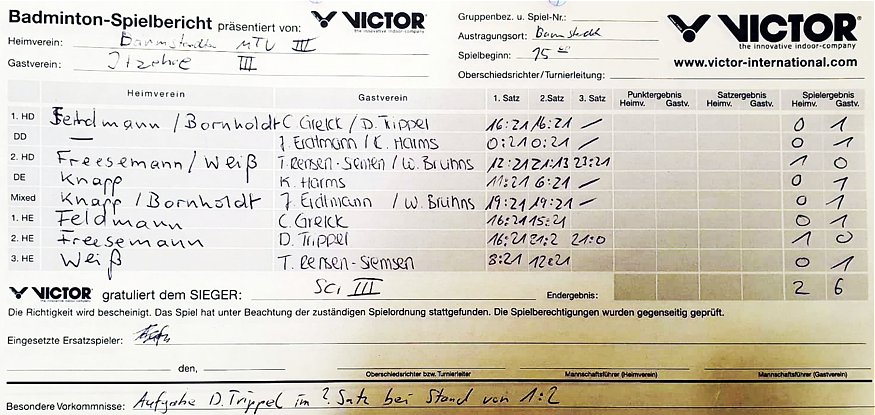 Badminton-Spielbericht präsentiert von: VICTOR the innovative indoor-company
Heimverein: MTV III
Gastverein: III
Gruppenbez. u. Spiel-Nr.:
Austragungsort: Barmstedt
Spielbeginn: 15 00
Oberschiedsrichter/Turnierleitung:
VICTOR
the innovative indoor-company
www.victor-international.com
Heimverein Gastverein 1. Satz 2.Satz 3. Satz Punktergebnis Heimv. Gastv. Satzergebnis Heimv. Gastv. Spielergebnis Heimv. Gastv.
1. HD Feldmann / Bornholdt C. Greick / D. Trippel 16:21 16:21 / 0 1
DD — J. Erdlmann / K. Harms 0:21 0:21 / 0 1
2. HD Freesemann / Weiß T. Rensen-Siemen / W. Bruhns 12:21 21:13 23:21 1 0
DE Knapp K. Harms 11:21 6:21 / 0 1
Mixed Knapp / Bornholdt J. Erdlmann / W. Bruhns 19:21 19:21 / 0 1
1. HE Feldmann C. Greick 16:21 15:21 0 1
2. HE Freesemann D. Trippel 16:21 21:2 21:0 1 0
3. HE Weiß T. Rensen-Siemsen 8:21 12:21 0 1
VICTOR the innovative indoor-company gratuliert dem SIEGER: SCI III Endergebnis: 2 6
Die Richtigkeit wird bescheinigt. Das Spiel hat unter Beachtung der zuständigen Spielordnung stattgefunden. Die Spielberechtigungen wurden gegenseitig geprüft.
Eingesetzte Ersatzspieler:
den,
Oberschiedsrichter bzw. Turnierleiter Mannschaftsführer (Heimverein) Mannschaftsführer (Gastverein)
Besondere Vorkommnisse: Aufgabe D. Trippel im 2. Satz bei Stand von 1:2